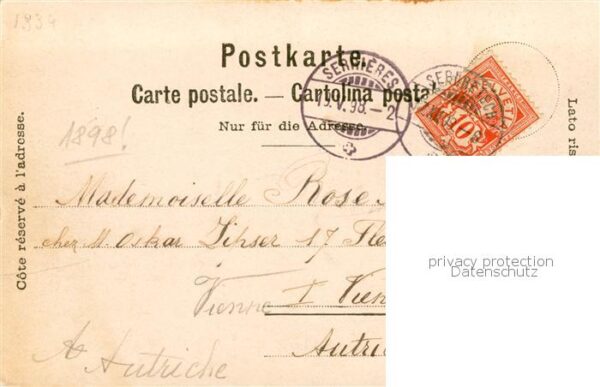 1934
Postkarte.
Carte postale. — Cartolina posta
Nur für die Adresse.
SERRIÈRES
15.V.98.-2
HELVETIA
10
Côte réservé à l'adresse.
Lato ris
1898!
Mademoiselle Rose
chez M. Oskar Lipser 17
Vienne I Vien
Autric
A Autriche
privacy protection
Datenschutz